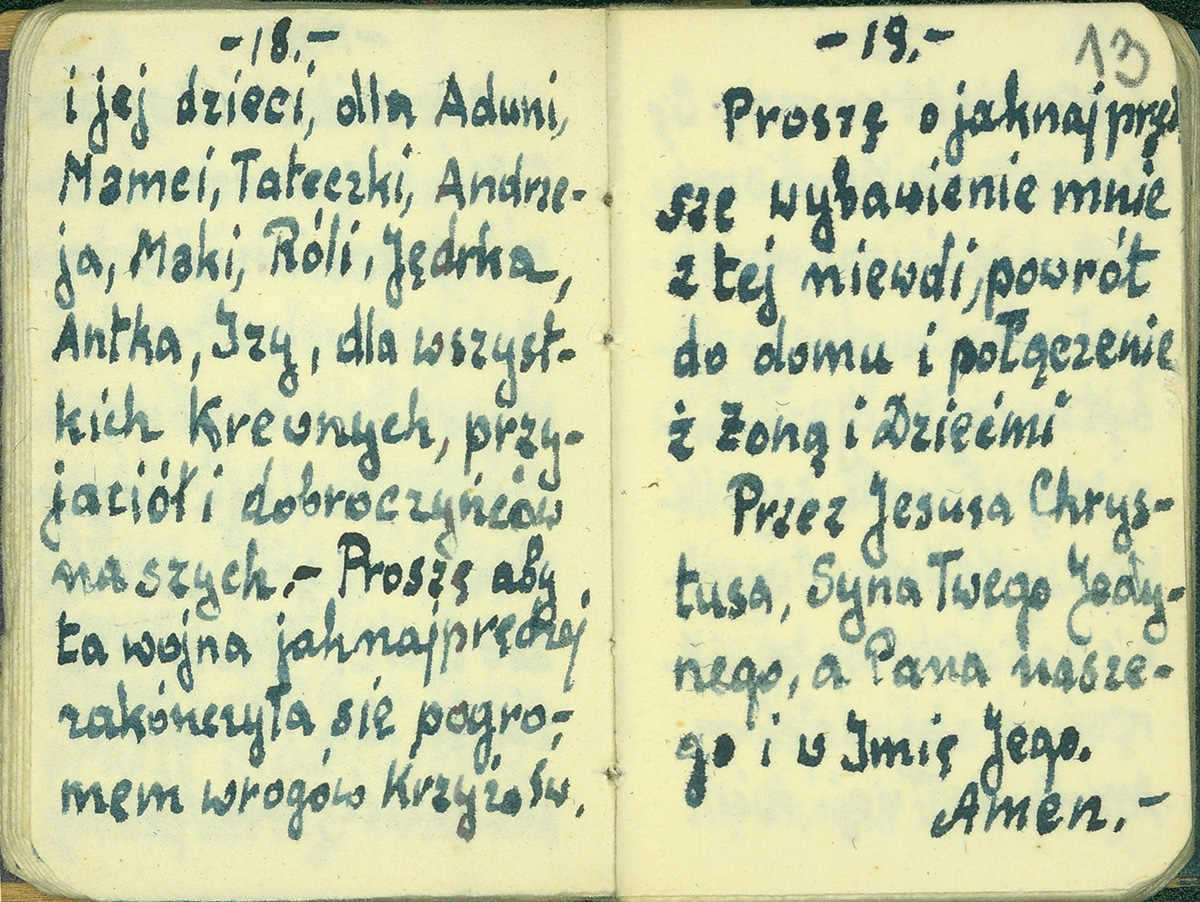 -18.-
i jej dzieci, dla Aduni,
Mamci, Tateczki, Andrze-
ja, Maki, Róli, Jędrka,
Antka, Izy, dla wszyst-
kich Krewnych, przy-
jaciół i dobroczyńców
naszych.- Proszę aby
ta wojna jaknajprędzej
zakończyła się pogro-
mem wrogów Krzyża św.
-19.-
13
Proszę o jaknajpręd
sze wybawienie mnie
z tej niewoli, powrót
do domu i połączenie
z Żoną i Dziećmi
Przez Jesusa Chrys-
tusa, Syna Twego Jedy-
nego, a Pana nasze-
go i w Imię Jego.
Amen.-